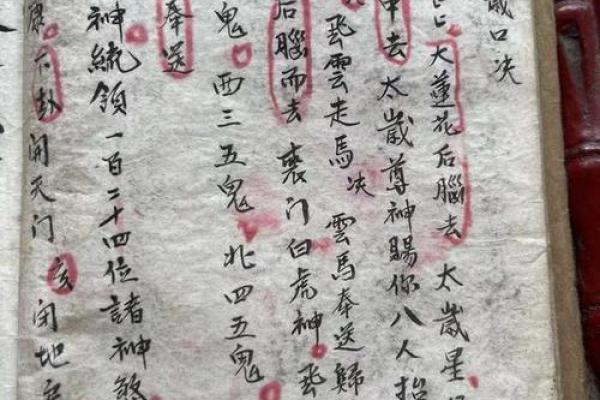 歲口决
大蓮花后腦去 太歲星
中去 太歲尊神賜你八人抬
飛雲走馬决 雲馬奉送歸
后腦而去 喪门白虎神 飛
鬼 西三五鬼 北四五鬼
奉送
神統領一百二十四位諸神煞
卦 開天门 亥 闭地